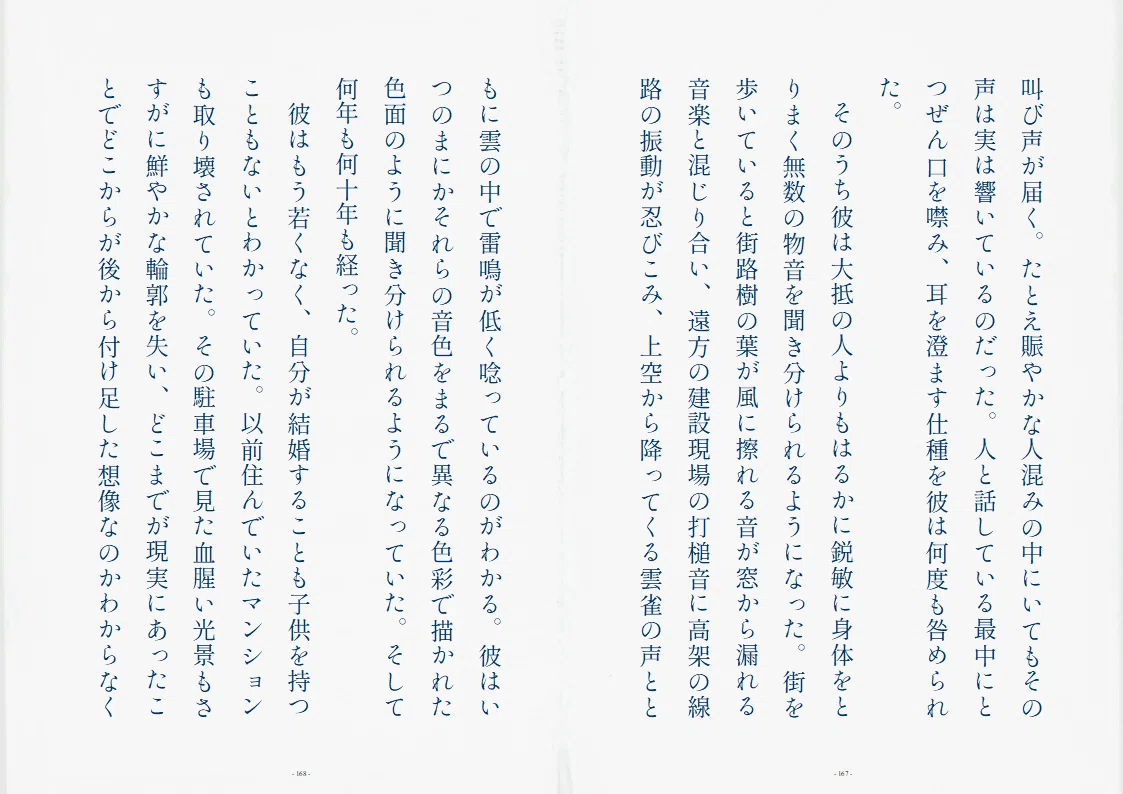 叫び声が届く。たとえ賑やかな人混みの中にいてもその
声は実は響いているのだった。人と話している最中にと
つぜん口を噤み、耳を澄ます仕種を彼は何度も咎められ
た。
そのうち彼は大抵の人よりもはるかに鋭敏に身体をと
りまく無数の物音を聞き分けられるようになった。街を
歩いていると街路樹の葉が風に擦れる音が窓から漏れる
音楽と混じり合い、遠方の建設現場の打槌音に高架の線
路の振動が忍びこみ、上空から降ってくる雲雀の声とと
- 167 -
もに雲の中で雷鳴が低く唸っているのがわかる。彼はい
つのまにかそれらの音色をまるで異なる色彩で描かれた
色面のように聞き分けられるようになっていた。そして
何年も何十年も経った。
彼はもう若くなく、自分が結婚することも子供を持つ
こともないとわかっていた。以前住んでいたマンション
も取り壊されていた。その駐車場で見た血腥い光景もさ
すがに鮮やかな輪郭を失い、どこまでが現実にあったこ
とでどこからが後から付け足した想像なのかわからなく
- 168 -